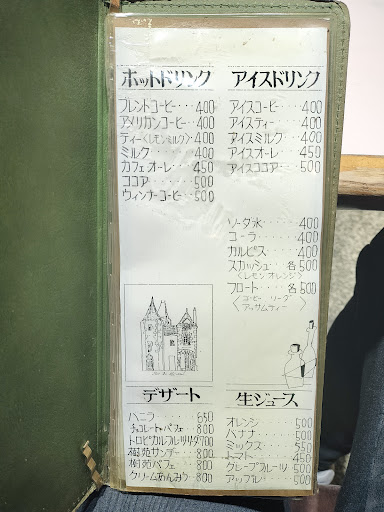 ホットドリンク
ブレンドコーヒー・・・400
アメリカンコーヒー・・400
ティー〈レモン ミルク〉・400
ミルク・・・・・・400
カフェオーレ・・・450
ココア・・・・・・500
ウィンナーコーヒー・・500
アイスドリンク
アイスコーヒー・・・400
アイスティー・・・・400
アイスミルク・・・・400
アイスオーレ・・・・450
アイスココア・・・・500
ソーダ水・・・・・400
コーラ・・・・・・400
カルピス・・・・・400
スカッシュ 各500
〈レモン オレンジ〉
フロート・・各500
〈コーヒー ソーダ
アッサムティー〉
デザート
バニラ・・・・・650
チョコレートパフェ・・800
トロピカルフルーツサンデー700
樹苑サンデー・・800
樹苑パフェ・・・800
クリームあんみつ・800
生ジュース
オレンジ・・・・500
バナナ・・・・・500
ミックス・・・・550
トマト・・・・・450
グレープフルーツ・500
アップル・・・・500